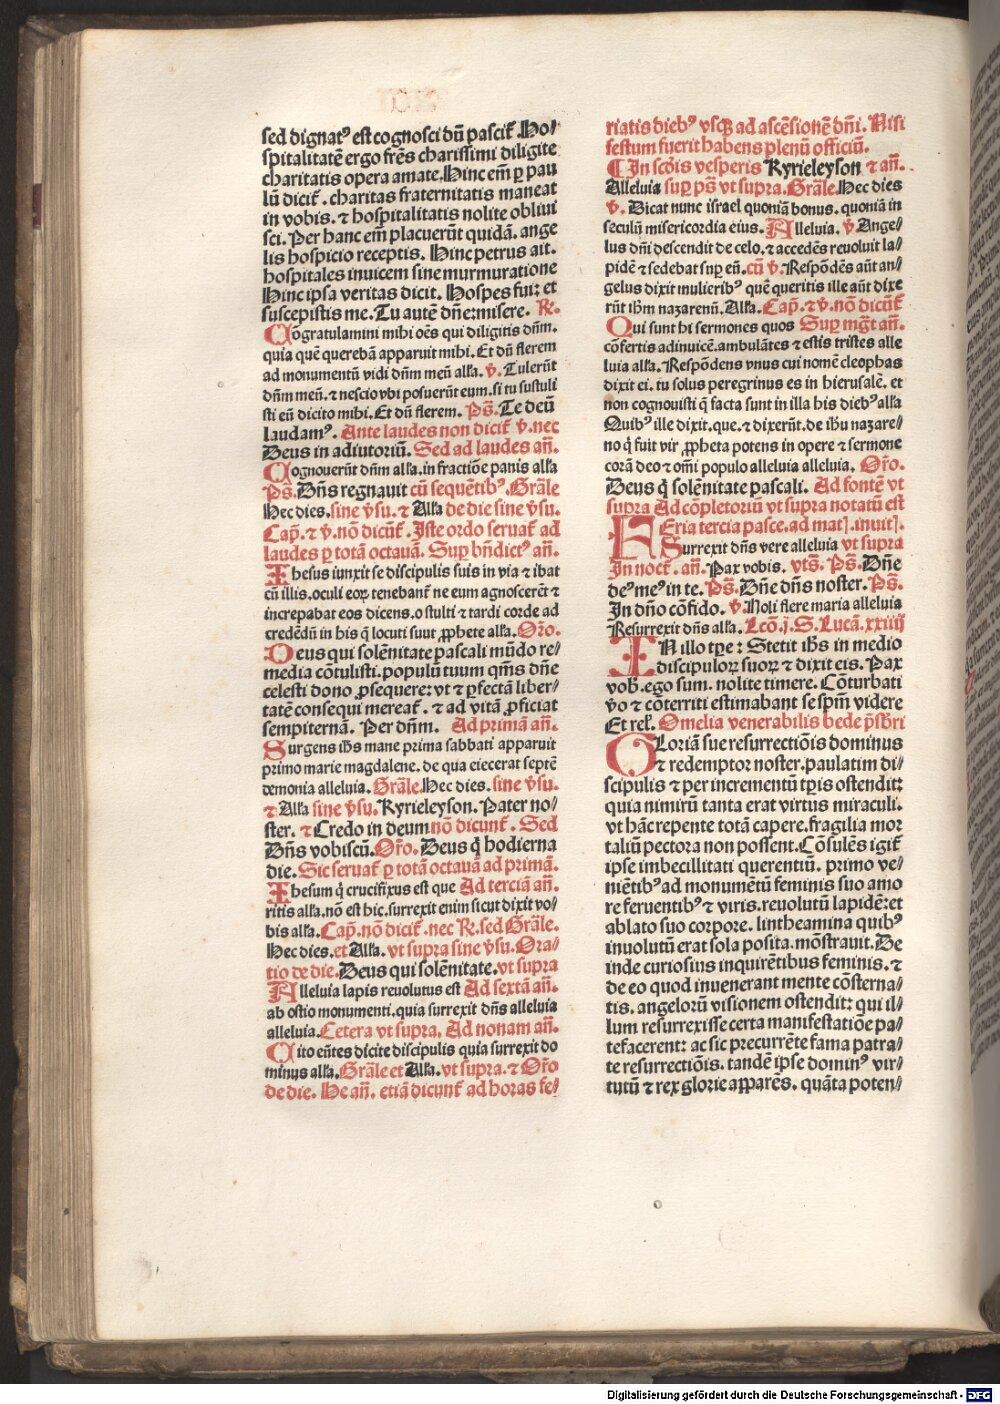 sed dignatꝰ est cognosci dū pascit᷑. Ho⸗
spitalitatē ergo frēs charissimi diligite
charitatis opera amate. Hinc em̄ ꝑ pau
lū dicit᷑. charitas fraternitatis maneat
in vobis. ⁊ hospitalitatis nolite obliui
sci. Per hanc em̄ placuerūt quidā. ange
lis hospicio receptis. Hinc petrus ait.
hospitales inuicem sine murmuratione
Hinc ipsa veritas dicit. Hospes fui: et
suscepistis me. Tu autē dn̄e: misere. R̄.
Cōgratulamini mihi oēs qui diligitis dn̄m.
quia quē querebā apparuit mihi. Et dū flerem
ad monumentū vidi dn̄m meū alł'a. v̄. Tulerūt
dn̄m meū. ⁊ nescio vbi posuerūt eum. si tu sustuli
sti eū dicito mihi. Et dū flerem. Ps̄. Te deū
laudamꝰ. Ante laudes non dicit᷑ v̄. nec
Deus in adiutoriū. Sed ad laudes an̄.
Cognouerūt dn̄m alł'a. in fractiōe panis alł'a
Ps̄. Dn̄s regnauit cū sequētibꝰ. Grāle
Hec dies. sine v̄su. ⁊ Alł'a de die sine v̄su.
Cap̄. ⁊ v̄. nō dicūt᷑. Iste ordo seruat᷑ ad
laudes ꝑ totā octauā. Suꝑ bn̄dictꝰ an̄.
Ihesus iunxit se discipulis suis in via ⁊ ibat
cū illis. oculi eoꝝ tenebant᷑ ne eum agnoscerēt ⁊
increpabat eos dicens. o stulti ⁊ tardi corde ad
credēdū in his q̄ locuti suut ꝓphete alł'a. Or̄o.
Deus qui solēnitate pascali mūdo re⸗
media cōtulisti. populū tuum qm̄s dn̄e
celesti dono ꝓsequere: vt ⁊ ꝑfectā liber⸗
tatē consequi mereat᷑. ⁊ ad vitā ꝓficiat
sempiternā. Per dn̄m. Ad primā an̄.
Surgens ih̄s mane prima sabbati apparuit
primo marie magdalene. de qua eiecerat septē
demonia alleluia. Grāle. Hec dies. sine v̄su.
⁊ Alł'a sine v̄su. Kyrieleyson. Pater no⸗
ster. ⁊ Credo in deum nō dicunt᷑. Sed
Dn̄s vobiscū. Or̄o. Deus q̄ hodierna
die. Sic seruat᷑ ꝑ totā octauā ad primā.
Ihesum q̄ crucifixus est que Ad terciā an̄.
ritis alł'a. nō est hic. surrexit enim sicut dixit vo⸗
bis alł'a. Cap̄. nō dicit᷑. nec R̄. sed Grāle.
Hec dies. et Alł'a. vt supra sine v̄su. Ora⸗
tio de die. Deus qui solēnitate. vt supra
Alleluia lapis reuolutus est Ad sextā an̄.
ab ostio monumenti. quia surrexit dn̄s alleluia
alleluia. Cetera vt supra. Ad nonam an̄.
Cito eūtes dicite discipulis quia surrexit do
minus alł'a. Grāle et Alł'a. vt supra. ⁊ Or̄o
de die. He an̄. etiā dicunt᷑ ad horas fe⸗
riatis diebꝰ vsqꝫ ad ascēsionē dn̄i. Nisi
festum fuerit habens plenū officiū.
¶ In scd̄is vesperis Kyrieleyson ⁊ an̄.
Alleluia suꝑ ps̄ vt supra. Grāle. Hec dies
v̄. Dicat nunc israel quoniā bonus. quoniā in
seculū misericordia eius. Alleluia. v̄ Ange⸗
lus dn̄i descendit de celo. ⁊ accedēs reuoluit la⸗
pidē ⁊ sedebat suꝑ eū. cū v̄. Respōdēs aūt an⸗
gelus dixit mulieribꝰ quē queritis ille aūt dixe
rūt ih̄m nazarenū. Alł'a. Cap̄. ⁊ v̄. nō dicūt᷑
Qui sunt hi sermones quos Suꝑ mg̃t an̄.
cōfertis adinuicē. ambulātes ⁊ estis tristes alle
luia alł'a. Respōdens vnus cui nomē cleophas
dixit ei. tu solus peregrinus es in hierusalē. et
non cognouisti q̄ facta sunt in illa his diebꝰ alł'a
Quibꝰ ille dixit. que. ⁊ dixerūt. de ih̄u nazare⸗
no q̄ fuit vir ꝓpheta potens in opere ⁊ sermone
corā deo ⁊ om̄i populo alleluia alleluia. Or̄o.
Deus q̄ solēnitate pascali. Ad fontē vt
supra Ad cōpletoriū vt supra notatū est
FEria tercia pasce. ad mat̄. inuit̄.
Surrexit dn̄s vere alleluia vt supra
In noct᷑. an̄. Pax vobis. vts̄. Ps̄. Dn̄e
deꝰ meꝰ in te. Ps̄. Dn̄e dn̄s noster. Ps̄.
In dn̄o cōfido. v̄. Noli flere maria alleluia
Resurrexit dn̄s alł'a. Lcō. j. S. Lucā. xxiiij
IN illo tp̄e: Stetit ih̄s in medio
discipuloꝝ suoꝝ ⁊ dixit eis. Pax
vob̄. ego sum. nolite timere. Cōturbati
v̄o ⁊ cōterriti estimabant se sp̄m videre
Et rel̄. Omelia venerabilis bede p̄sb̄ri
GLoriā sue resurrectiōis dominus
⁊ redemptor noster. paulatim di⸗
scipulis ⁊ per incrementū tp̄is ostendit:
quia nimirū tanta erat virtus miraculi.
vt hāc repente totā capere. fragilia mor
taliū pectora non possent. Cōsulēs igit᷑
ipse imbecillitati querentiū. primo ve⸗
niētibꝰ ad monumētū feminis suo amo
re feruentibꝰ ⁊ viris. reuolutū lapidē: et
ablato suo corpore. lintheamina quibꝰ
inuolutū erat sola posita. mōstrauit. De
inde curiosius inquirētibus feminis. ⁊
de eo quod inuenerant mente cōsterna⸗
tis. angelorū visionem ostendit: qui il⸗
lum resurrexisse certa manifestatiōe pa⸗
tefacerent: ac sic precurrēte fama patra⸗
te resurrectiōis. tandē ipse dominꝰ vir⸗
tutū ⁊ rex glorie apparēs. quāta poten⸗
Digitalisierung gefördert durch die Deutsche Forschungsgemeinschaft - DFG